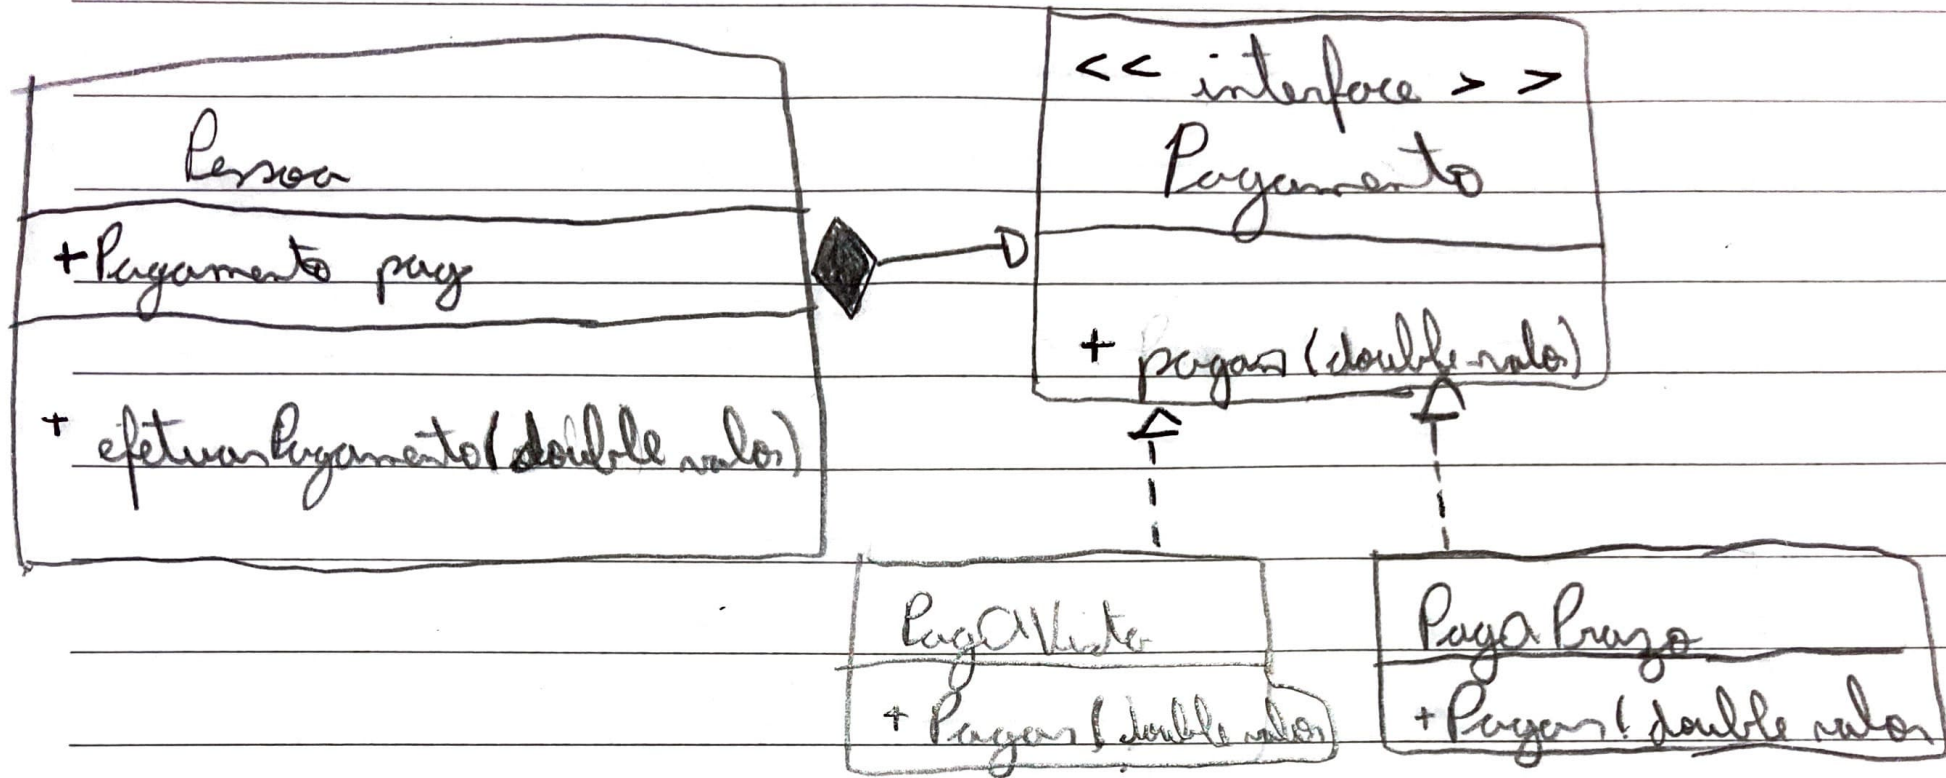 Pessoa
+Pagamento pag
+ efetuarPagamento(double valor)
<< interface >>
Pagamento
+ pagar(double valor)
PagAVista
+ Pagar(double valor
PagAPrazo
+Pagar(double valor